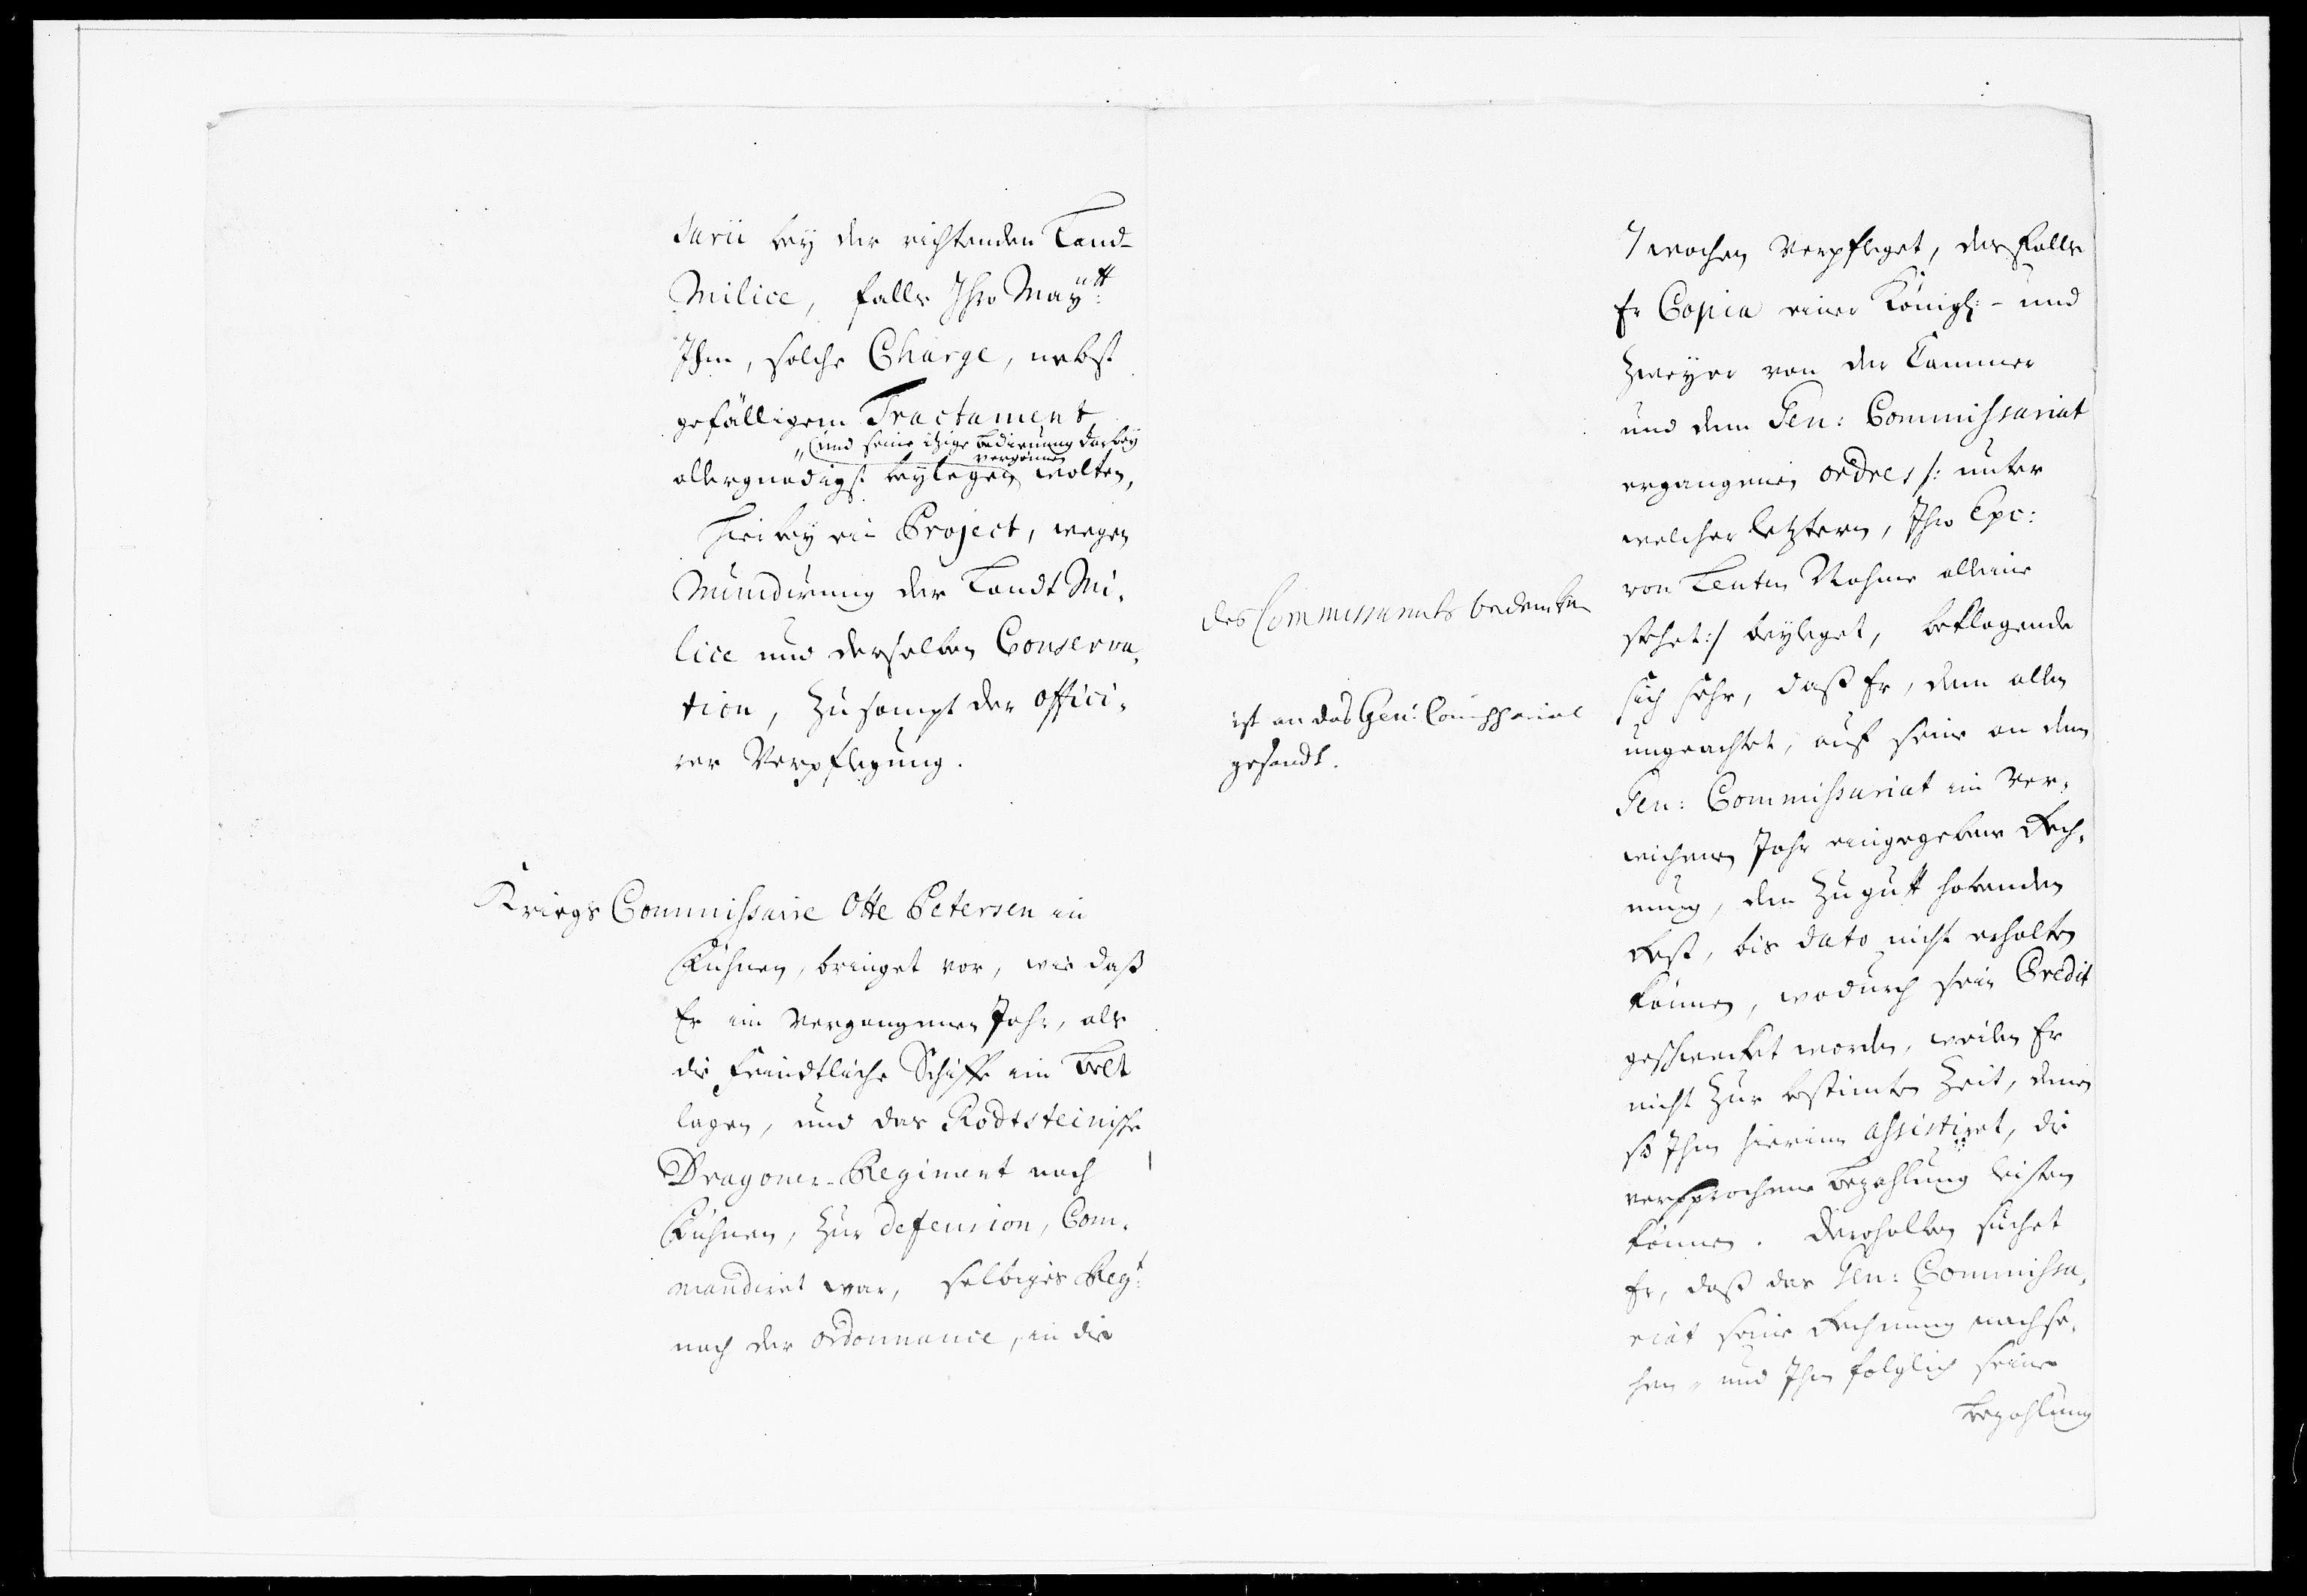 sarii bey der richtenden Land-
Milice, falls Ihro Maytt:
Ihm, solche Charge, nebst
gefälligem Tractament
und seine itzige bedienung darbey
vergönnen
allergnädigst beylegen wolten,
Hierbey ein Project, wegen
Mundirung der Landt Mi-
lice und derselben Conserva-
tion, Zusampt der offici-
rer Verpflegung.
Kriegs Commissarie Otte Petersen in
Fühnen, bringet vor, wie daß
Er im Vergangenen Jahr, als
die Feindtliche Schiffe im Belt
lagen, und das Rodtsteinische
Dragoner-Regiment nach
Fühnen, zur defension, Com-
mandiret war, selbiges Regt:
nach der ordonnance, in die
des Commissariats bedencken
ist an das Gen: Commissariat
gesandt.
7 wochen Verpfleget, desfalls
Er Copia einer Königl:- und
Zweyer von der Cammer
und dem Gen: Commissariat
ergangenen ordres /: unter
welcher letztern, Ihro Exc:
von Lenten Nahme alleine
stehet:/ beyleget, beklagende
sich sehr, daß Er, dem allen
ungeachtet, auf seine an dem
Gen: Commissariat im Ver-
wichenen Jahr eingegebene Rech-
nung, den Zugutt habenden
Rest, bis dato nicht erhalten
können, wodurch sein Credit
geschwecket worden, weilen Er
nicht Zur bestimten Zeit, denen
so Ihm hierinn assistiret, die
versprochene Bezahlung leisten
können. Derohalben suchet
Er, daß das Gen: Commissa-
riat seine Rechnung nachse-
hen, und Ihm folglich seine
Bezahlung